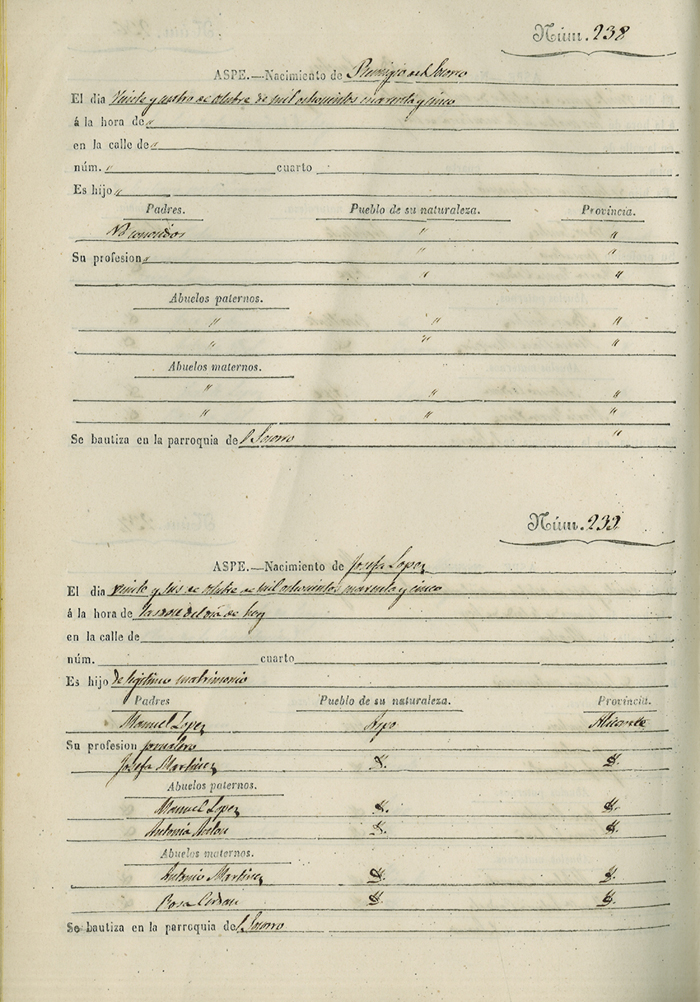 Núm. 238
ASPE.—Nacimiento de Remigio del Socorro
El dia Veinte y cuatro de Octubre de mil ochocientos cuarenta y cinco
á la hora de "
en la calle de "
núm. " cuarto
Es hijo "
Padres. Pueblo de su naturaleza. Provincia.
" "
Su profesion "
" "
Abuelos paternos.
" " "
" " "
Abuelos maternos.
" " "
" " "
Se bautiza en la parroquia del Socorro "
Núm. 239
ASPE.—Nacimiento de Josefa Lopez
El dia veinte y seis de Octubre de mil ochocientos cuarenta y cinco
á la hora de las doce del dia de hoy
en la calle de
núm. cuarto
Es hijo de legitimo matrimonio
Padres Pueblo de su naturaleza. Provincia.
Manuel Lopez Aspe Alicante
Su profesion jornalero
Josefa Martinez
Abuelos paternos.
Manuel Lopez
Antonia
Abuelos maternos.
Antonio Martinez
Rosa
Se bautiza en la parroquia del Socorro